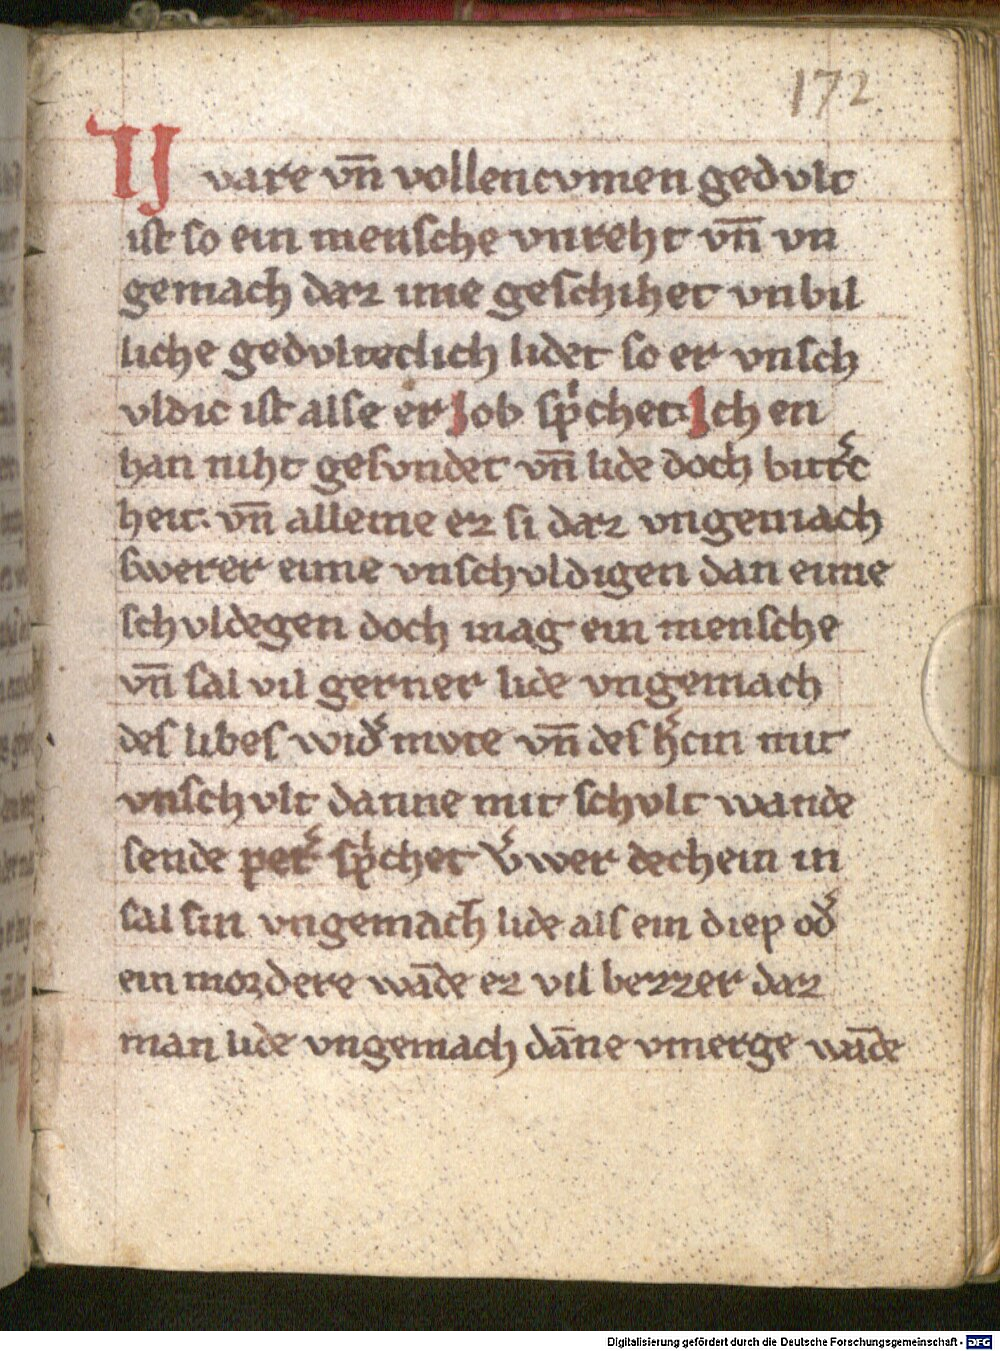 172
W vare vn̄ vollencvmen gedvlt
ist so ein mensche vnreht vn̄ vn
gemach daz ime geschihet vnbil
liche gedvlteclich lidet so er vnsch
vldic ist alse er Job sp̍chet. Jch en
han niht gesvndet vn̄ lide doch bitt͛c
heit. vn̄ alleine ez si daz vngemach
swerer eime vnschvldigen dan eime
schvldegen doch mag ein mensche
vn̄ sal vil gerner lide vngemach
des libes wid͛ mvte vn̄ des h͛cin mit
vnschvlt danne mit schvlt wande
sende pet͛ sp̍chet v͛wer dechein in
sal sin vngemach lide als ein diep od͛
ein mordere wāde ez vil bezzer daz
man lide vngemach dāne vmerge wāde
Digitalisierung gefördert durch die Deutsche Forschungsgemeinschaft - DFG